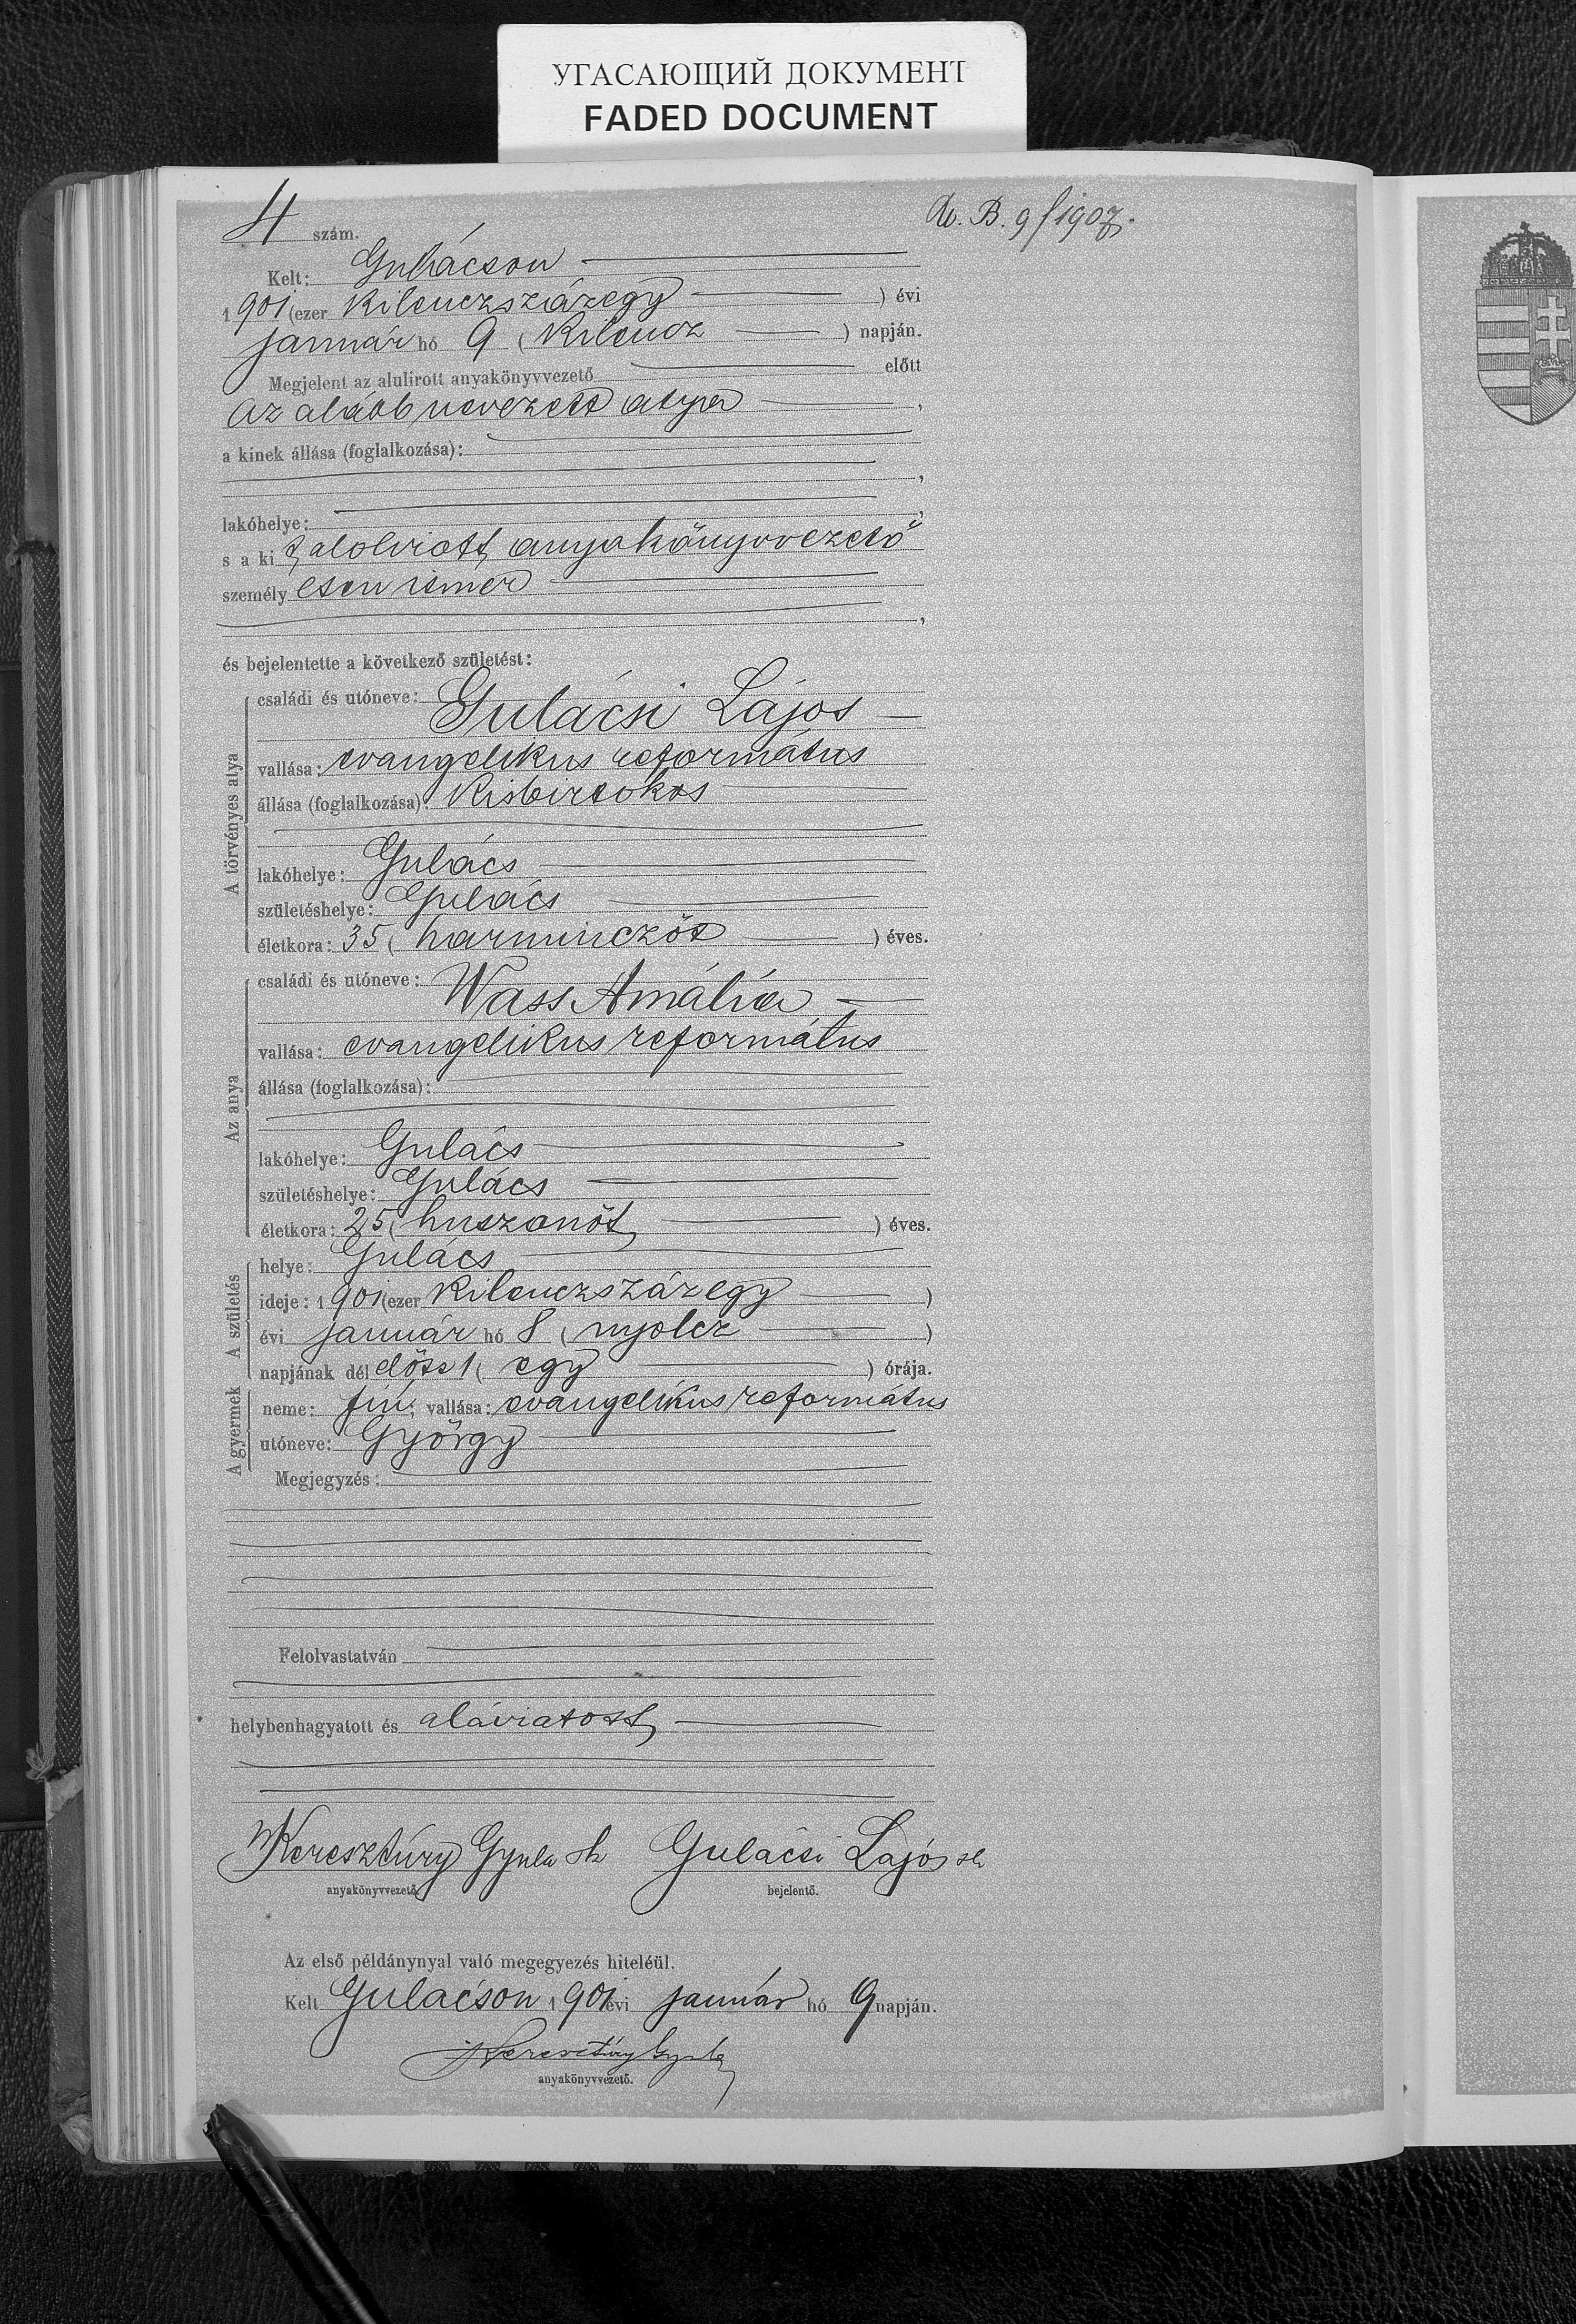 УГАСАЮЩИЙ ДОКУМЕНТ
FADED DOCUMENT
4 szám.
B. 9/1907.
Kelt: Gulácson
1901 (ezer kilenczszázegy ) évi
január hó 9 ( kilencz ) napján.
Megjelent az alulirott anyakönyvvezető előtt
az alább nevezett atya ,
a kinek állása (foglalkozása):
,
lakóhelye: ,
s a kit alolirott anyakönyvvezető
személy esen ismer
,
és bejelentette a következő születést:
A törvényes atya
családi és utóneve: Gulácsi Lajos
vallása: evangelikus református
állása (foglalkozása): kisbirtokos
lakóhelye: Gulács
születéshelye: Gulács
életkora: 35 ( harminczöt ) éves.
Az anya
családi és utóneve: Wass Amália
vallása: evangelikus református
állása (foglalkozása):
lakóhelye: Gulács
születéshelye: Gulács
életkora: 25 ( huszonöt ) éves.
A születés
helye: Gulács
ideje: 1901 (ezer kilenczszázegy )
évi január hó 8 ( nyolcz )
napjának dél előtt 1 ( egy ) órája.
A gyermek
neme: fiú; vallása: evangelikus református
utóneve: György
Megjegyzés:
Felolvastatván
helybenhagyatott és aláiratott
Keresztúry Gyula sk Gulácsi Lajos sk
anyakönyvvezető. bejelentő.
Az első példánynyal való megegyezés hiteléül.
Kelt Gulácson 1901 évi január hó 9 napján.
Keresztúry Gyula
anyakönyvvezető.